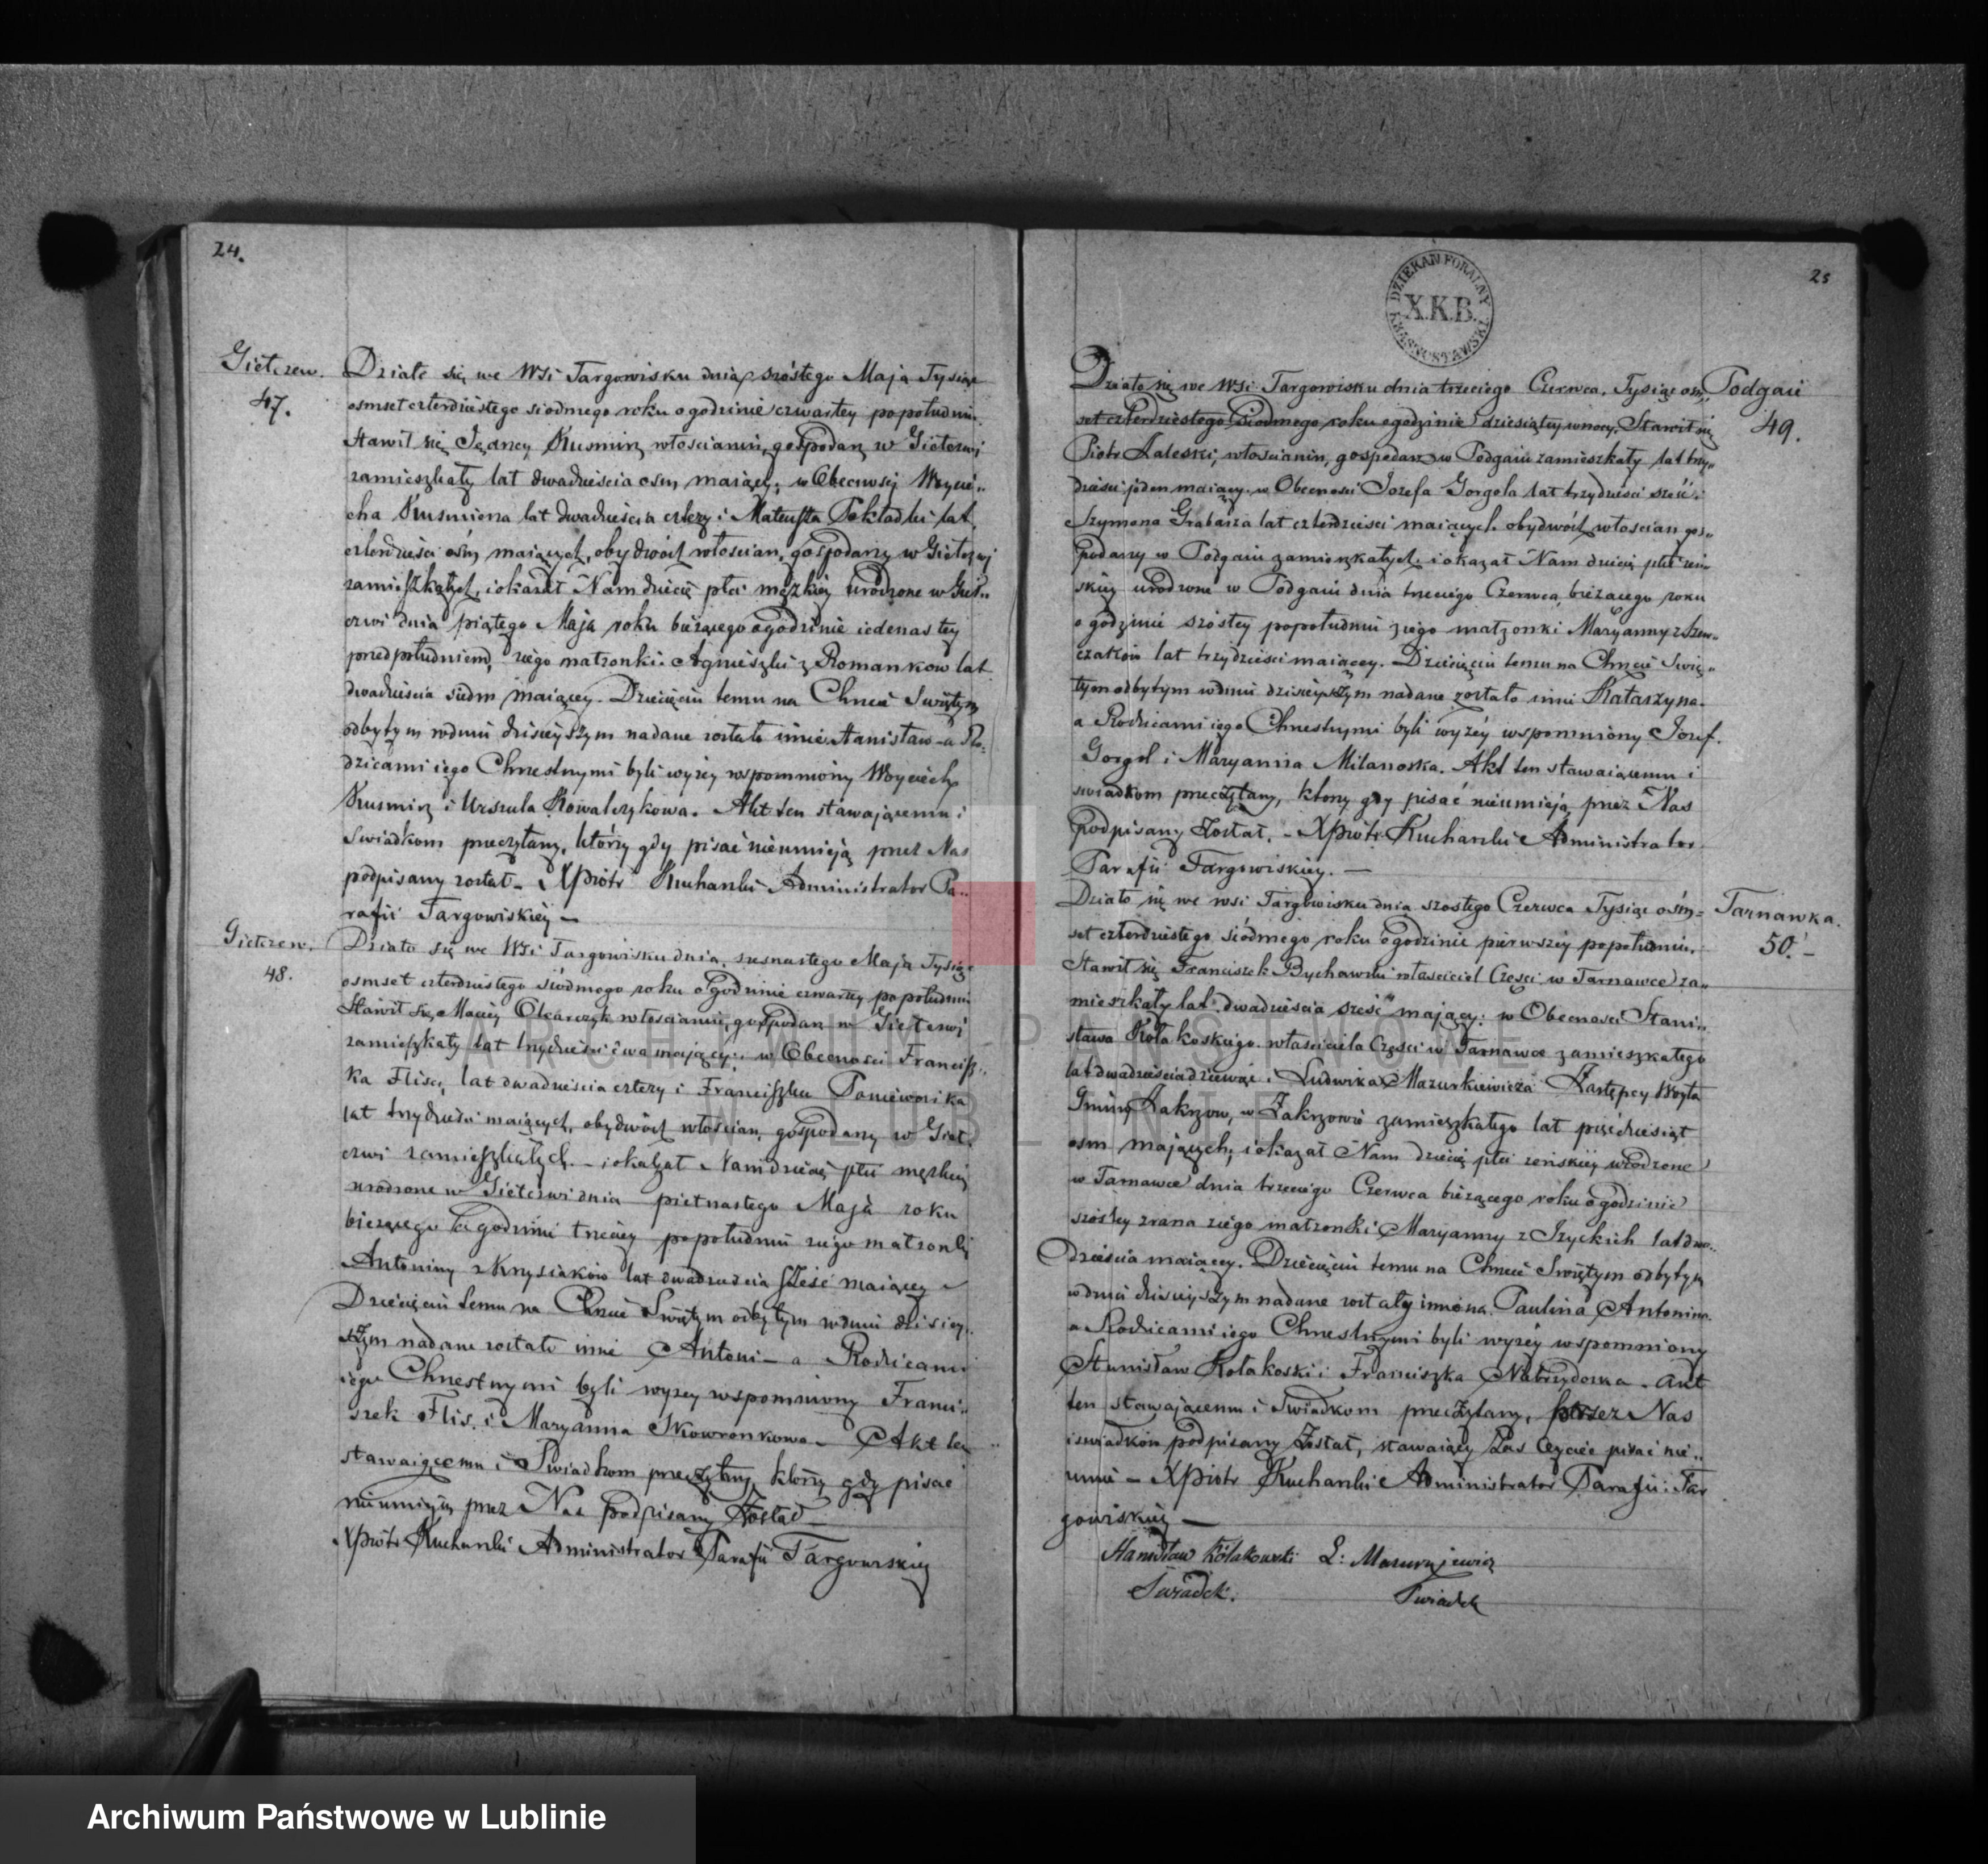 24.
Giełczew.
47.
Działo się we Wsi Targowisku dnia szóstego Maja Tysiąc
osmset czterdziestego siodmego roku o godzinie czwartey popołudniu
Stawił się Jędrzey Kusmirz włoscianin, gospodarz w Giełczwi
zamieszkały lat dwadzieścia osm maiący, w Obecnosci Woycie„
cha Kusmirza lat dwadzieścia cztery i Mateusza Pokładki lat
czterdzieści ośm maiących, obydwóch włościan, gospodarzy w Giełczwi
zamieszkałych, i okazał Nam dziecię płci męzkiey urodzone w Gieł„
czwi dnia piątego Maja roku bieżącego o godzinie iedenastey
przed południem, z iego małzonki Agnieszki z Romankow lat
dwadzieścia siedm maiącey. Dziecięciu temu na Chrzcie Swiętym
odbytym w dniu dzisieyszym nadane zostało imie Stanisław - a Ro„
dzicami iego Chrzestnymi byli wyżey wspomniony Woyciech
Kusmirz i Urszula Kowalczykowa. Akt ten stawającemu i
Swiadkom przeczytany, którzy gdy pisać nieumieją przez Nas
podpisany został - X Piotr Kucharski Administrator Pa„
rafii Targowiskiey —
Giełczew.
48.
Działo się we Wsi Targowisku dnia szesnastego Maja Tysiąc
osmset czterdziestego siódmego roku o godzinie czwartey popołudniu
Stawił się Maciey Olearczyk włościanin, gospodarz w Giełczwi
zamieszkały lat trydzieści dwa mający, w Obecnosci Francisz„
ka Flisa, lat dwadzieścia cztery i Franciszka Poniewozika
lat trzydzieści maiących, obydwóch włościan, gospodarzy w Gieł„
czwi zamieszkałych. - i okazał Nam dziecię płci męzkiey
urodzone w Giełczwi dnia pietnastego Maja roku
bieżącego o godzinie trzeciey popołudniu z iego małzonki
Antoniny z Krysiaków lat dwadzieścia sześć maiącey -
Dziecięciu temu na Chrzcie Swiętym odbytym w dniu dzisiey„
szym nadane zostało imie Antoni - a Rodzicami
iego Chrzestnymi byli wyzey wspomniony Franci„
szek Flis. i Maryanna Skowronkowa - Akt ten
stawaiącemu i Swiadkom przeczytany, ktorzy gdy pisać
nieumieią przez Nas podpisany Został —
X Piotr Kucharski Administrator Parafii Targowiskiey
25
DZIEKAN FORALNY
X.K.B.
KRASNOSTAWSKI
Podgaii
49.
Działo się we Wsi Targowisku dnia trzeciego Czerwca, Tysiąc osm„
set czterdziestego Siodmego roku o godzinie dziesiątey w nocy. Stawił się
Piotr Zaleski, włościanin, gospodarz w Podgaiu zamieszkały lat trzy„
dzieści jeden maiący w Obecnosci Jozefa Gorgola lat trzydzieści sześć i
Szymona Grabarza lat czterdzieści maiących obydwóch włoscian gos„
podarzy w Podgaiu zamieszkałych, i okazał Nam dziecię płci żeń„
skiey urodzone w Podgaiu dnia trzeciego Czerwca bieżacego roku
o godzinie szóstey popołudniu z iego małzonki Maryanny z Szew„
czaków lat trzydzieści maiącey. Dziecięciu temu na Chrzcie Swię„
tym odbytym w dniu dzisieyszym nadane zostało imie Katarzyna.
a Rodzicami iego Chrzestnymi byli wyżéy wspomniony Jozef.
Gorgol i Maryanna Milanoska. Akt ten stawaiącemu i
swiadkom przeczytany, ktorzy gdy pisać nieumieją przez Nas
podpisany Został. - X Piotr Kucharski Administrator
Parafii Targowiskiey. —
Tarnawka.
50. -
Działo się we wsi Targowisku dnia szostego Czerwca Tysiąc ośm„
set czterdziestego siódmego roku o godzinie pierwszéy popołudniu.
Stawił się Franciszek Bychawski własciciel Częsci w Tarnawce za„
mieszkały lat dwadzieścia sześć mający; w Obecnosci Stani„
sława Kołakoskiego własciciela Częsci w Tarnawce zamieszkałego
lat dwadzieścia dziewięc i Ludwika Mazurkiewicza Zastępcy Woyta
Gminy Zakrzow, w Zakrzowie zamieszkałego lat piędziesiąt
osm mających, i okazał Nam dziecię płci zeńskiey urodzone
w Tarnawce dnia trzeciego Czerwca bieżącego roku o godzinie
szóstey zrana z iego małzonki Maryanny z Izyckich lat dwa„
dzieścia maiącey. Dziecięciu temu na Chrzcie Swiętym odbytym
w dniu dzisieyszym nadane zostały imiona Paulina Antonina
a Rodzicami iego Chrzestnymi byli wyzéy wspomniony
Stanisław Kołakoski i Franciszka Nabrzydoska. Akt
ten stawającemu i Swiadkom przeczytany, przez Nas
i swiadków podpisany Został, stawaiący Zas Oyciec pisać nie„
umie - X Piotr Kucharski Administrator Parafii Tar
gowiskiey —
Stanisław Kołakowski L: Mazurkiewicz
Swiadek. Swiadek
ARCHIWUM PAŃSTWOWE
W LUBLINIE
Archiwum Państwowe w Lublinie